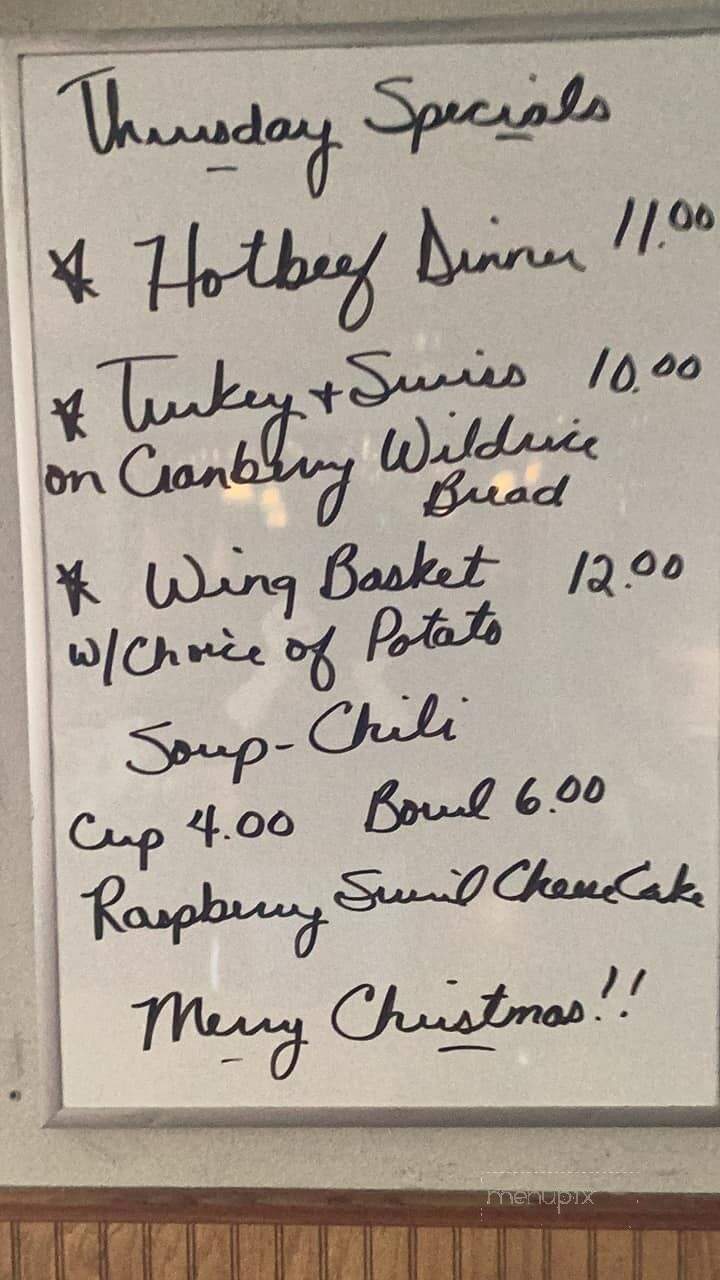 Thursday Specials
* Hotbeef Dinner 11.00
* Turkey + Swiss 10.00
on Cranberry Wildrice
Bread
* Wing Basket 12.00
w/Choice of Potato
Soup - Chili
Cup 4.00 Bowl 6.00
Raspberry Swirl CheeseCake
Merry Christmas!!
menupix